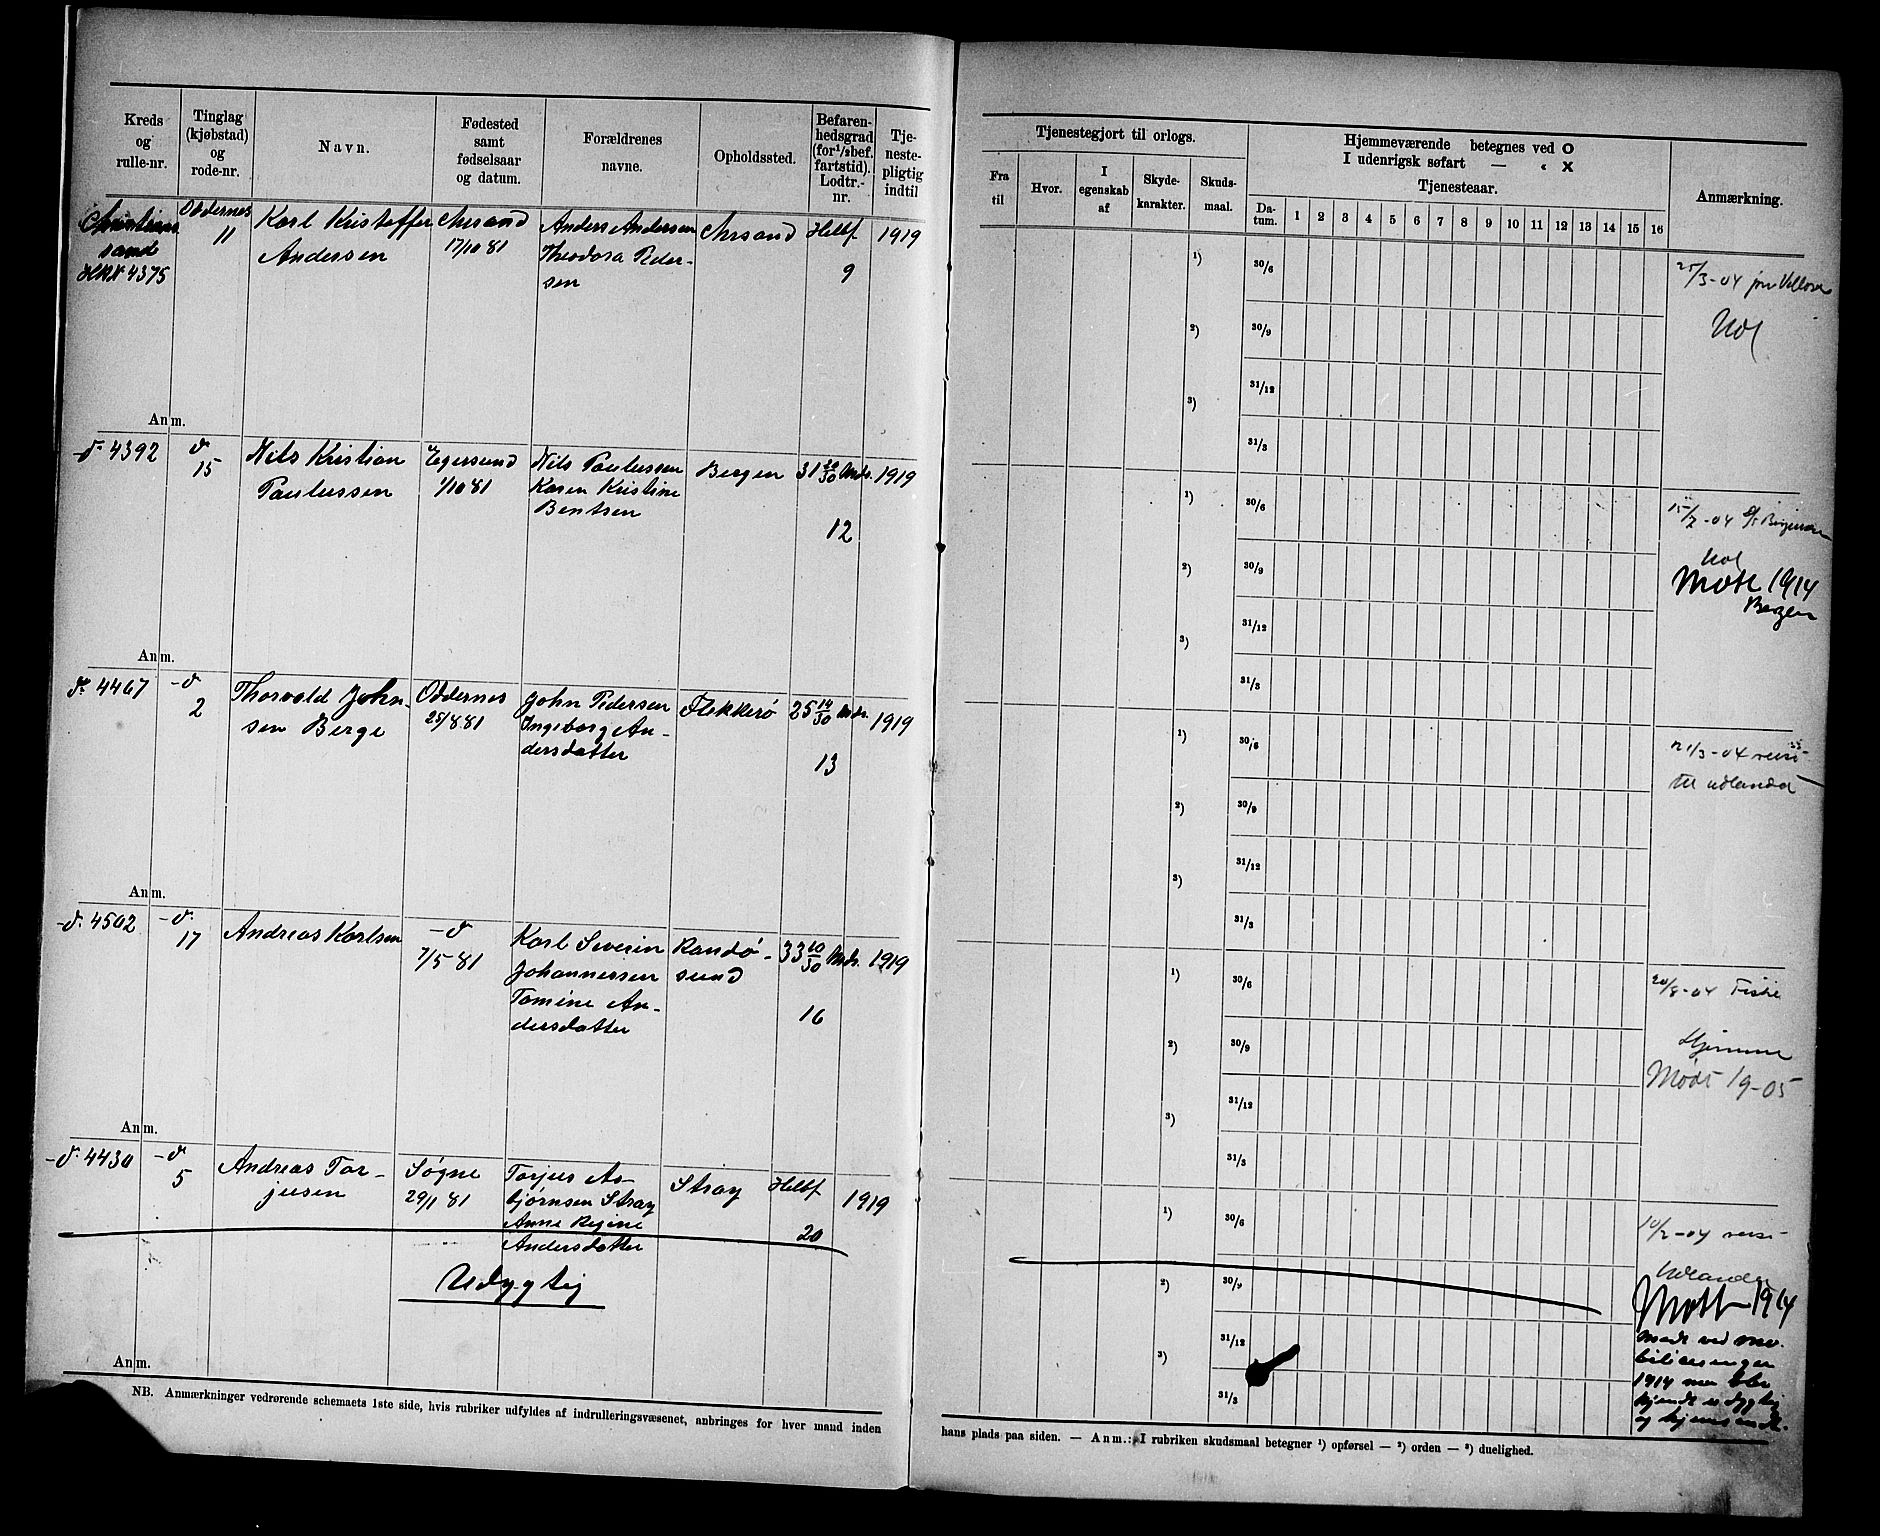 Kreds og rulle-nr.
Tinglag (kjøbstad) og rode-nr.
Navn.
Fødested samt fødselsaar og datum.
Forældrenes navne.
Opholdssted.
Befarenhedsgrad (for 1/2 bef. fartstid). Lodtr.-nr.
Tjenestepligtig indtil
Tjenestegjort til orlogs.
Fra til
Hvor.
I egenskab af
Skydekarakter.
Skudsmaal.
Hjemmeværende betegnes ved O
I udenrigsk søfart — « X
Tjenesteaar.
Datum. 1 2 3 4 5 6 7 8 9 10 11 12 13 14 15 16
Anmærkning.
Christians
sand
HRN 4375
Oddernes
11
Karl Kristoffer
Andersen
Chrsand
17/10 81
Anders Andersen
Theodora Peder-
sen
Chrsand
Helbf
9
1919
1)
2)
3)
30/6
30/9
31/12
31/3
25/3-04
Udl
Anm.
d. 4392
d
15
Nils Kristian
Paulussen
Egersund
1/10 81
Nils Paulussen
Karen Kristine
Bentsen
Bergen
31 20/30 Mdr.
12
1919
1)
2)
3)
30/6
30/9
31/12
31/3
15/2-04
Udl
Møtt 1914
Bergen
Anm.
d. 4467
d
2
Thorvald John-
sen Berge
Oddernes
25/8 81
John Pedersen
Ingeborg An-
dersdatter
Flekkerø
25 14/30 Mdr.
13
1919
1)
2)
3)
30/6
30/9
31/12
31/3
21/3-04 reist
til udlandet
Anm.
d. 4502
d.
17
Andreas Karlsen
d
7/5 81
Karl Severin
Johannessen
Tomine An-
dersdatter
Randø-
sund
33 10/30 Mdr.
16
1919
1)
2)
3)
30/6
30/9
31/12
31/3
20/8-04 Fiske
Hjemme
Mødt 19-05
Anm.
d. 4430
d
5
Andreas Tor-
jusen
Søgne
29/1 81
Torjus As-
bjørnsen Stray
Anne Regine
Andersdatter
Stray
Helbf
20
1919
Udygtig
1)
2)
3)
30/6
30/9
31/12
31/3
10/2-04 reist
Udlandet
Møtt 1914
Mødt ved mo-
biliseringen
1914 men ble
kjendt udygtig
og hjemsendt.
Anm.
NB. Anmærkninger vedrørende schemaets 1ste side, hvis rubriker udfyldes af indrulleringsvæsenet, anbringes for hver mand inden
hans plads paa siden. — Anm.: I rubriken skudsmaal betegner 1) opførsel — 2) orden — 3) duelighed.